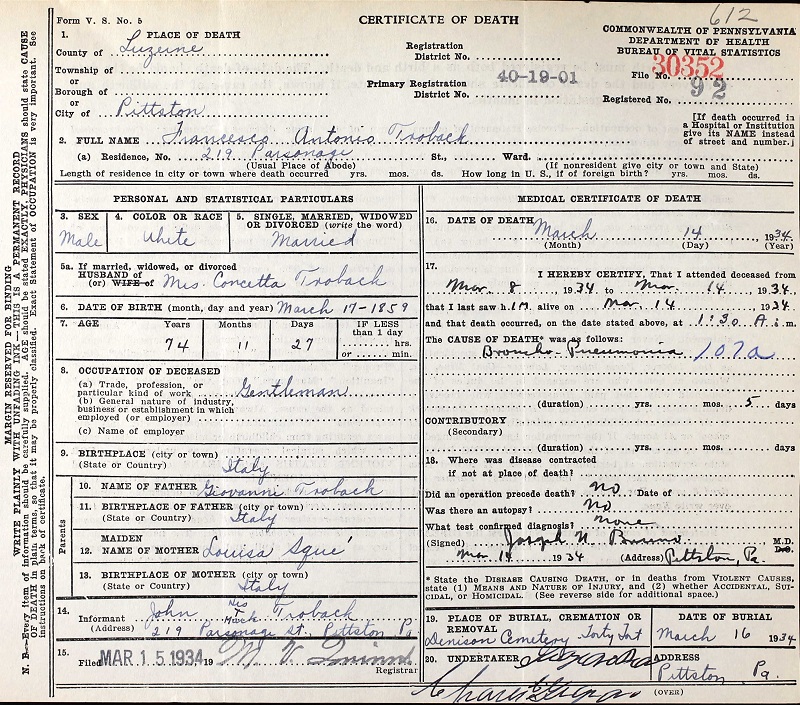 612
Form V. S. No. 5
CERTIFICATE OF DEATH
COMMONWEALTH OF PENNSYLVANIA
DEPARTMENT OF HEALTH
BUREAU OF VITAL STATISTICS
File No. 30352
Registered No. 92
[If death occurred in a Hospital or Institution give its NAME instead of street and number.]
1. PLACE OF DEATH
County of Luzerne
Township of
or
Borough of
or
City of Pittston
Registration District No.
Primary Registration District No. 40-19-01
2. FULL NAME Francesco Antonio Troback
(a) Residence, No. 219 Parsonage St., Ward.
(Usual Place of Abode) (If nonresident give city or town and State)
Length of residence in city or town where death occurred yrs. mos. ds. How long in U. S., if of foreign birth? yrs. mos. ds.
PERSONAL AND STATISTICAL PARTICULARS
3. SEX Male
4. COLOR OR RACE White
5. SINGLE, MARRIED, WIDOWED OR DIVORCED (write the word) Married
5a. If married, widowed, or divorced
HUSBAND of
(or) WIFE of Mrs. Concetta Troback
6. DATE OF BIRTH (month, day and year) March 17-1859
7. AGE Years Months Days IF LESS than 1 day
74 11 27 hrs. or min.
8. OCCUPATION OF DECEASED
(a) Trade, profession, or particular kind of work Gentleman
(b) General nature of industry, business or establishment in which employed (or employer)
(c) Name of employer
9. BIRTHPLACE (city or town)
(State or Country) Italy
Parents
10. NAME OF FATHER Giovanni Troback
11. BIRTHPLACE OF FATHER (city or town)
(State or Country) Italy
MAIDEN
12. NAME OF MOTHER Louisa Squé
13. BIRTHPLACE OF MOTHER (city or town)
(State or Country) Italy
14. Informant John Troback
(Address) 219 Parsonage St. Pittston Pa
15. Filed MAR 15 1934 19
Registrar
MEDICAL CERTIFICATE OF DEATH
16. DATE OF DEATH March 14 1934
(Month) (Day) (Year)
17. I HEREBY CERTIFY, That I attended deceased from
Mar. 8 1934 to Mar. 14 1934
that I last saw him alive on Mar. 14 1934
and that death occurred, on the date stated above, at 1:30 A. m.
The CAUSE OF DEATH* was as follows:
Broncho-Pneumonia 107a
(duration) yrs. mos. 5 days
CONTRIBUTORY
(Secondary)
(duration) yrs. mos. days
18. Where was disease contracted
if not at place of death?
Did an operation precede death? No Date of
Was there an autopsy? No
What test confirmed diagnosis? None
(Signed) Joseph M.D.
Mar 1934 (Address) Pittston, Pa.
* State the DISEASE CAUSING DEATH, or in deaths from VIOLENT CAUSES,
state (1) MEANS AND NATURE OF INJURY, and (2) whether ACCIDENTAL, SUICIDAL, or HOMICIDAL. (See reverse side for additional space.)
19. PLACE OF BURIAL, CREMATION OR REMOVAL
Denison Cemetery
DATE OF BURIAL
March 16 1934
20. UNDERTAKER
ADDRESS
Pittston Pa.
(OVER)
MARGIN RESERVED FOR BINDING
WRITE PLAINLY WITH UNFADING INK—THIS IS A PERMANENT RECORD
N. B.—Every item of information should be carefully supplied. AGE should be stated EXACTLY. PHYSICIANS should state CAUSE
OF DEATH in plain terms, so that it may be properly classified. Exact Statement of OCCUPATION is very important. See
instructions on back of certificate.